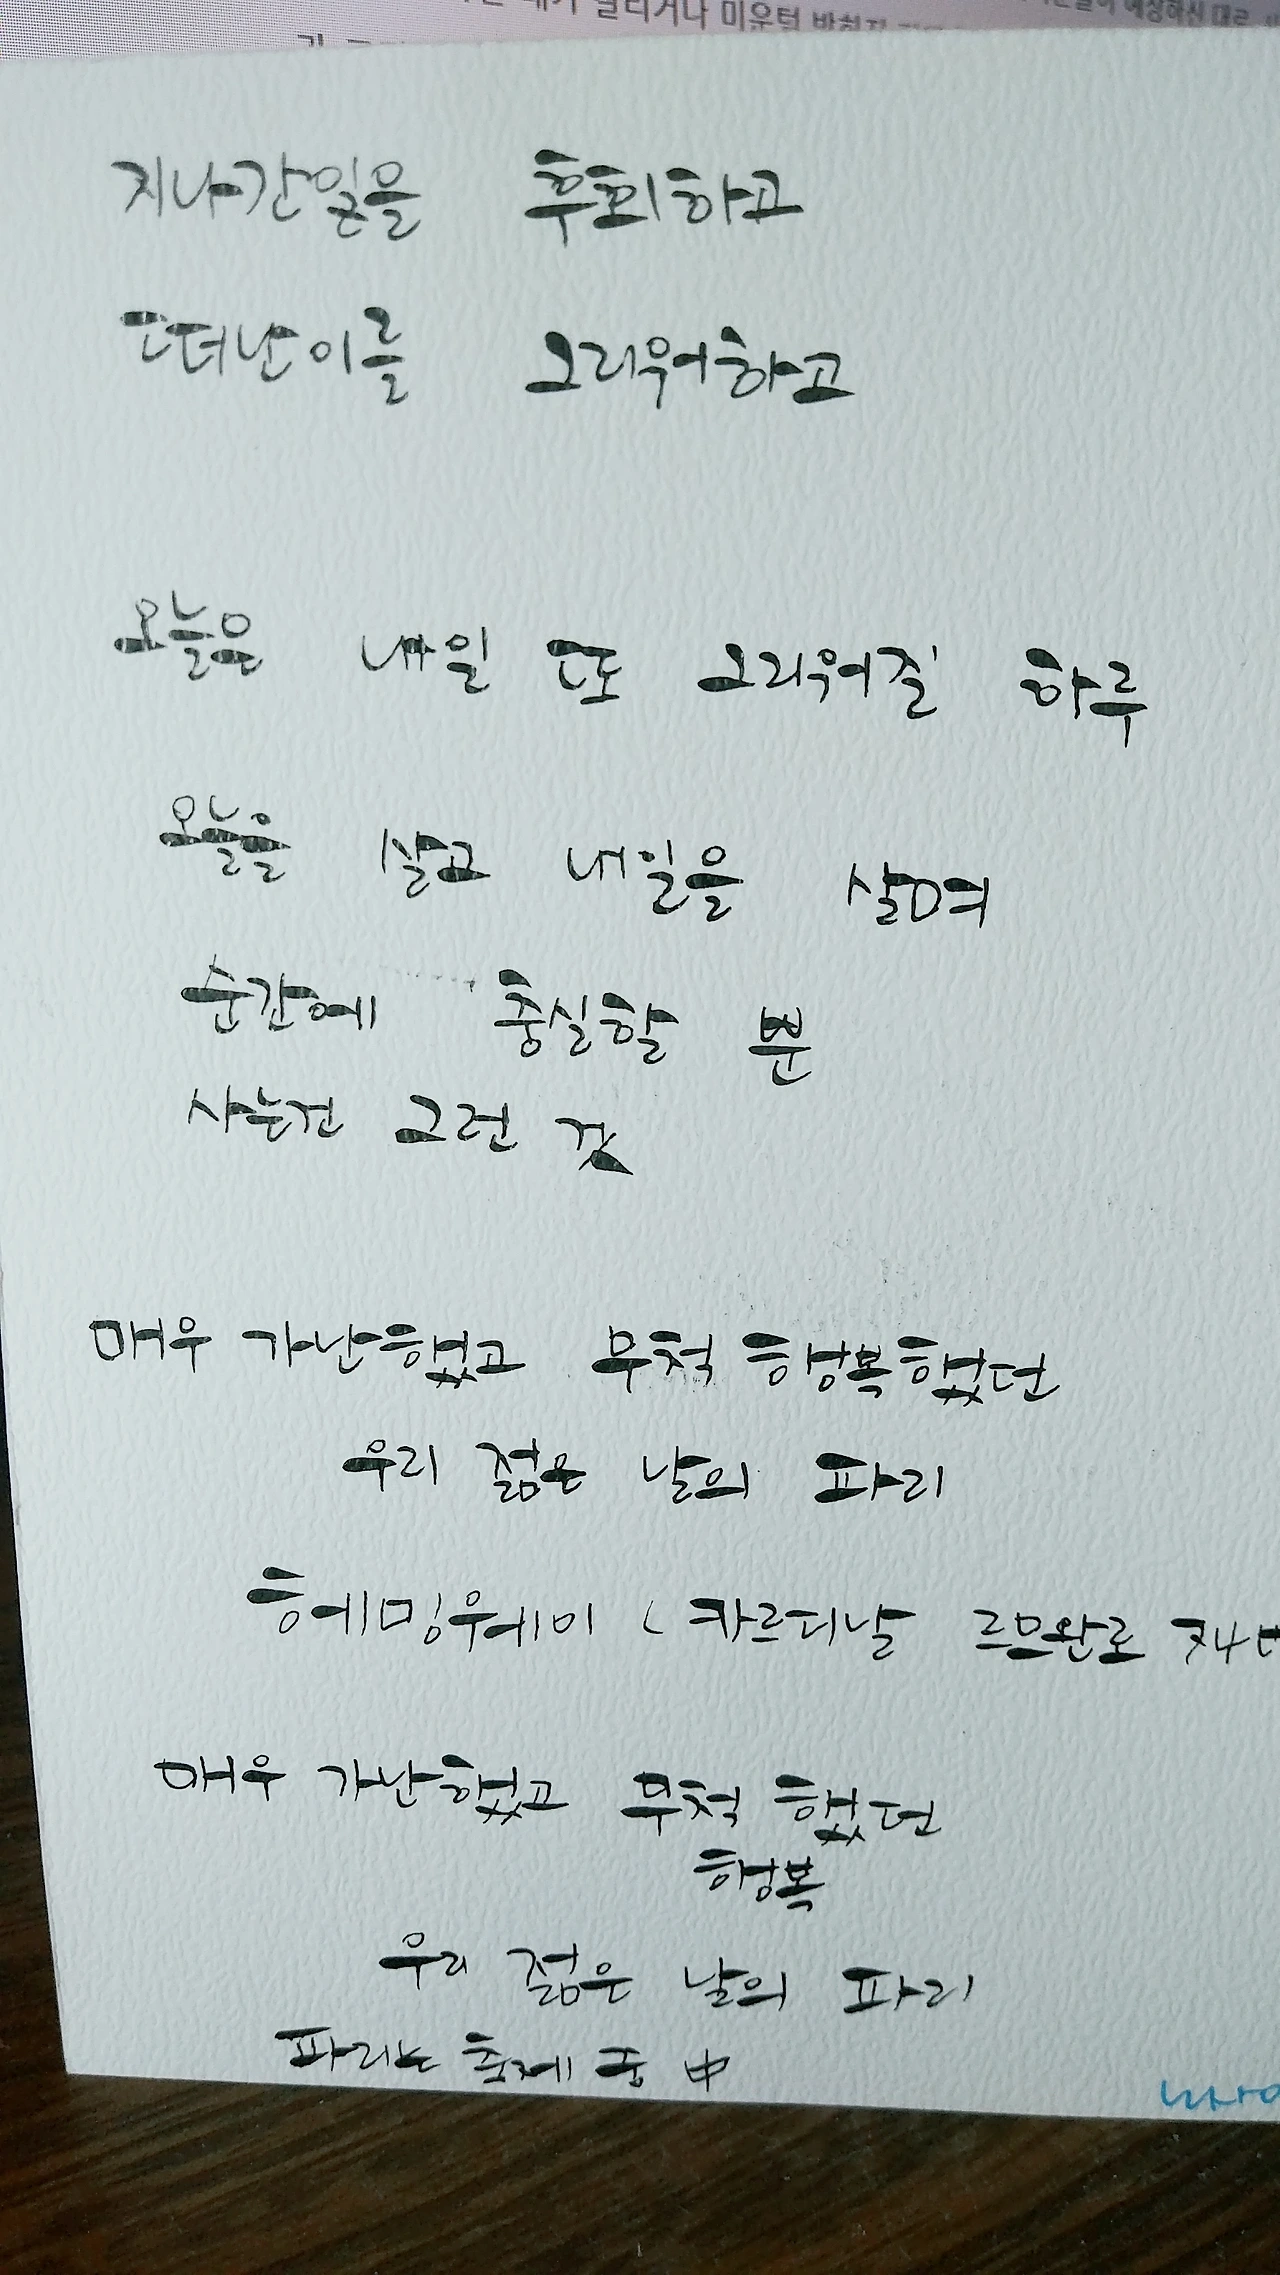 미운털 박히지
지나간일을 후회하고
떠난이를 그리워하고
오늘은 내일 또 그리워질 하루
오늘을 살고 내일을 살며
순간에 충실할 뿐
사는건 그런 것
매우 가난했고 무척 행복했던
우리 젊은 날의 파리
헤밍웨이 ( 카르디날 르므완로 74번
매우 가난했고 무척 했던
행복
우리 젊은 날의 파리
파리는 축제 중 中